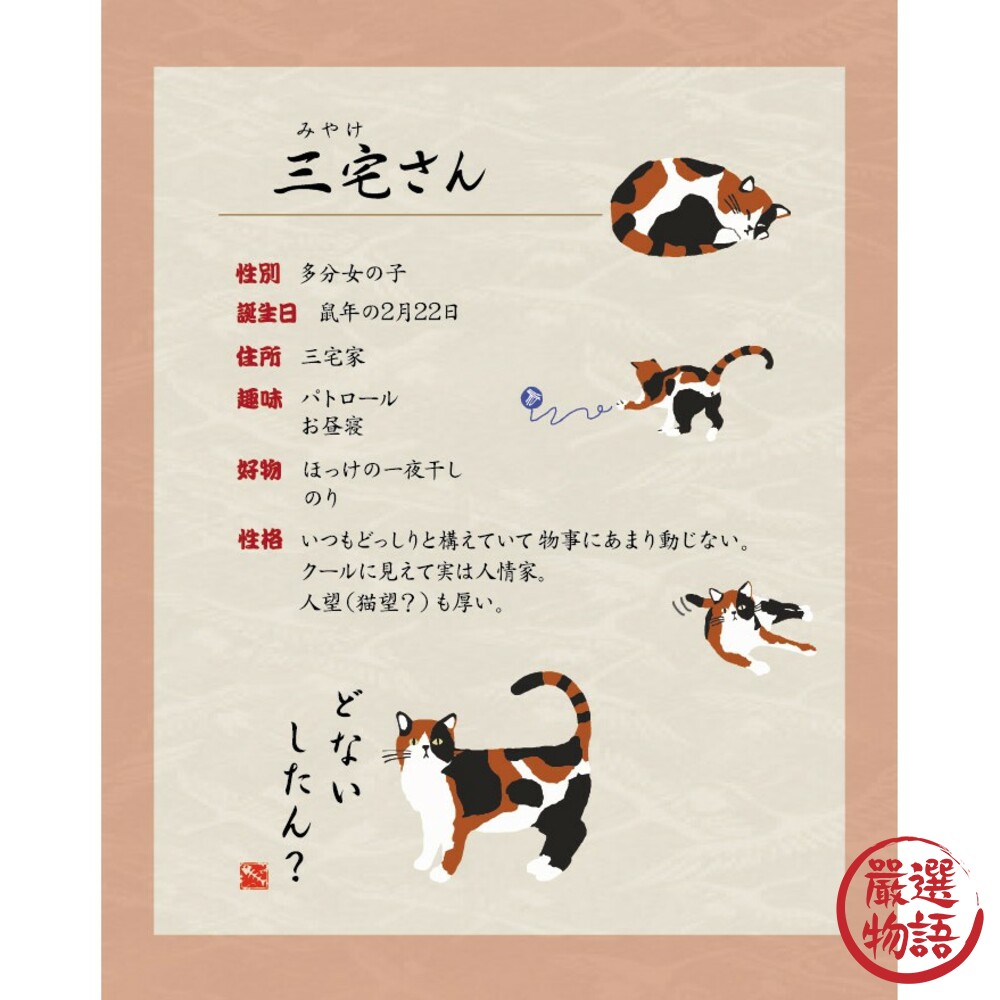 みやけ
三宅さん
性別 多分女の子
誕生日 鼠年の2月22日
住所 三宅家
趣味 パトロール
お昼寝
好物 ほっけの一夜干し
のり
性格 いつもどっしりと構えていて物事にあまり動じない。
クールに見えて実は人情家。
人望(猫望?)も厚い。
どない
したん?
嚴選
物語